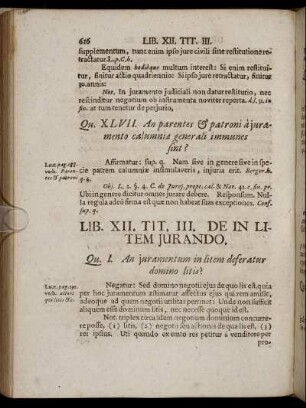 616 LIB. XII. TIT. III.
supplementum, tunc enim ipso jure civili sine restitutione re-
tractatur. L. p. C. h.
Equidem hodieque multum interest: Si enim restitui-
tur, finitur actio quadriennio: Si ipso jure retractatur, finitur
30. annis:
Not. In juramento judiciali non datur restitutio, nec
rescinditur negotium ob instrumenta noviter reperta.
at tum tenetur de perjurio,
Qu. XLVII. An parentes & patroni à jura-
mento calumniæ generali immunes
sint?
Affirmatur: sup. q. Nam sive in genere sive in spe-
cie patrem calumniæ insimulaveris, injuria erit. Berger. h.
q. 4.
Obj. L. 2. §. 4. C. de Jurej. propt. cal. & Nov. 49. c. fin. pr.
Ubi in genere dicitur omnes jurare debere. Respondem. Nul-
la regula adeò firma est quæ non habeat suas exceptiones. Conf.
sup. q.
LIB. XII. TIT. III. DE IN LI-
TEM JURANDO.
Qu. I. An juramentum in litem deferatur
domino litis?
Negatur: Sed domino negotii ejus de quo lis est quia
per hoc juramentum æstimatur affectus ejus qui rem amisit,
adeoque ad quem negotii utilitas pertinet: Unde non sufficit
aliquem esse dominum litis, nec necesse quoque id est.
Not. triplex circa idem negotium dominium concurre-
re posse. (1) litis, (2) negotii seu actionis de quo lis est, (3)
rei ipsius. Uti quando ex emto res petitur à venditore per
pro-